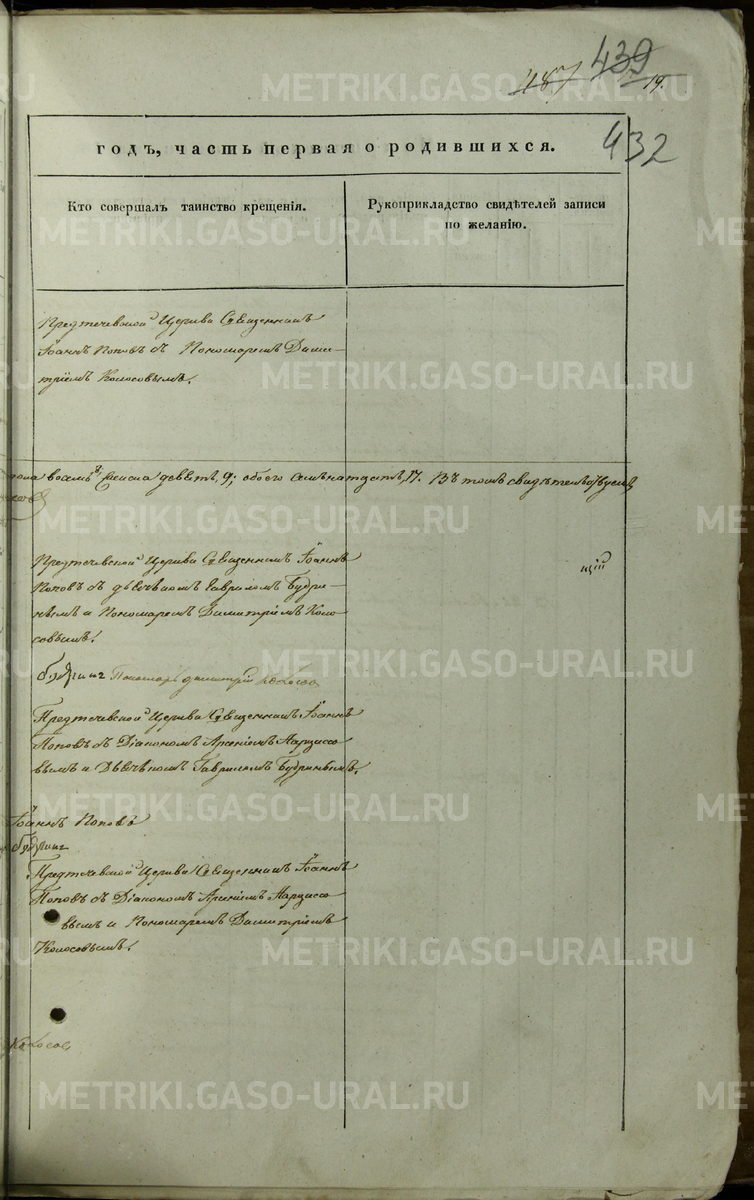 439
19.
432
годъ, часть первая о родившихся.
Кто совершалъ таинство крещенія.
Рукоприкладство свидѣтелей записи
по желанію.
Предтечевской Церкви Священникъ
Іоаннъ Поповъ съ Пономаремъ Дими-
тріемъ Колосовымъ.
пола восемь 8, женска девять, 9; обоего семнатцать, 17. Въ томъ свидѣтельствуемъ
Предтечевской Церкви Священникъ Іоаннъ
Поповъ съ дьячкомъ Гавриломъ Будри-
нымъ и Пономаремъ Димитріемъ Коло-
совымъ.
Пономарь Димитрій Колосов
Предтечевской Церкви Священникъ Іоаннъ
Поповъ съ Діакономъ Арсеніемъ Нарциссо
вымъ и Дьячкомъ Гавриломъ Будринымъ.
Іоаннъ Поповъ
Предтечевской Церкви Священникъ Іоаннъ
Поповъ съ Діакономъ Арсеніемъ Нарциссо
вымъ и Пономаремъ Димитріемъ
Колосовымъ.
Колосов
METRIKI.GASO-URAL.RU